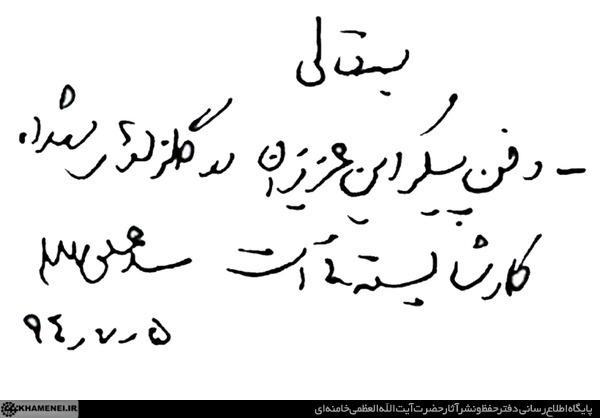 بسمه‌تعالی
- دفن پیکر این عزیزان در گلزارهای شهدا،
کار شایسته‌ای است سیدعلی خامنه‌ای
۹۴ر۷ر۵
KHAMENEI.IR پایگاه اطلاع رسانی دفتر حفظ و نشر آثار حضرت آیت الله العظمی خامنه‌ای